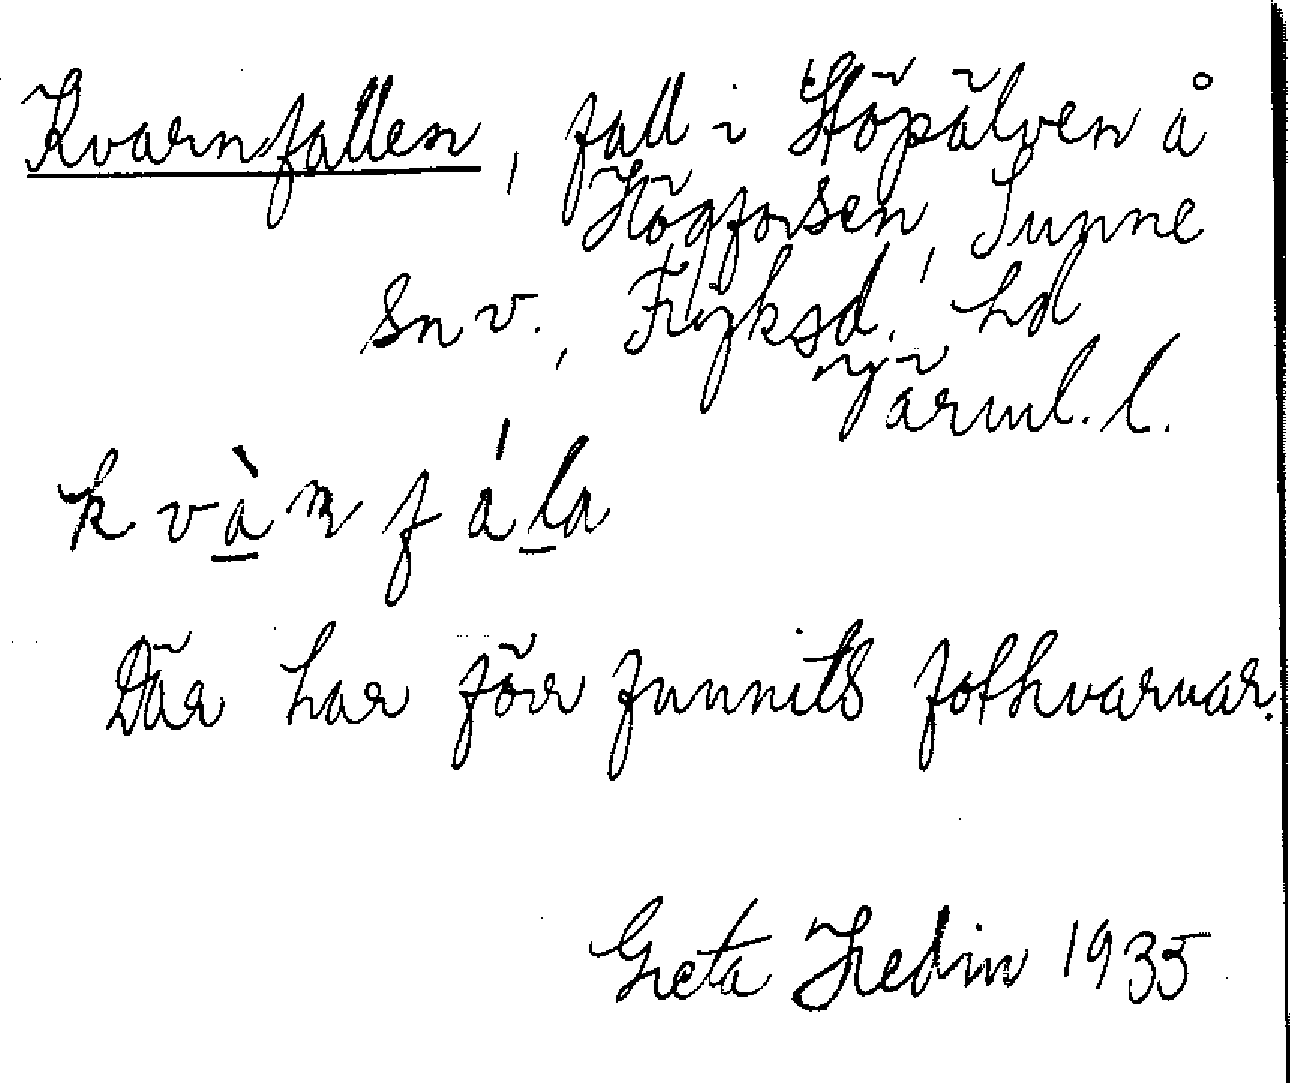 Kvarnfallen, fall i Höpälven å
Högforsen, Sunne
sn v., Fryksd. hd
Värml. l.
kvàɳfála
Där har förr funnits fotkvarnar.
Greta Hedin 1935